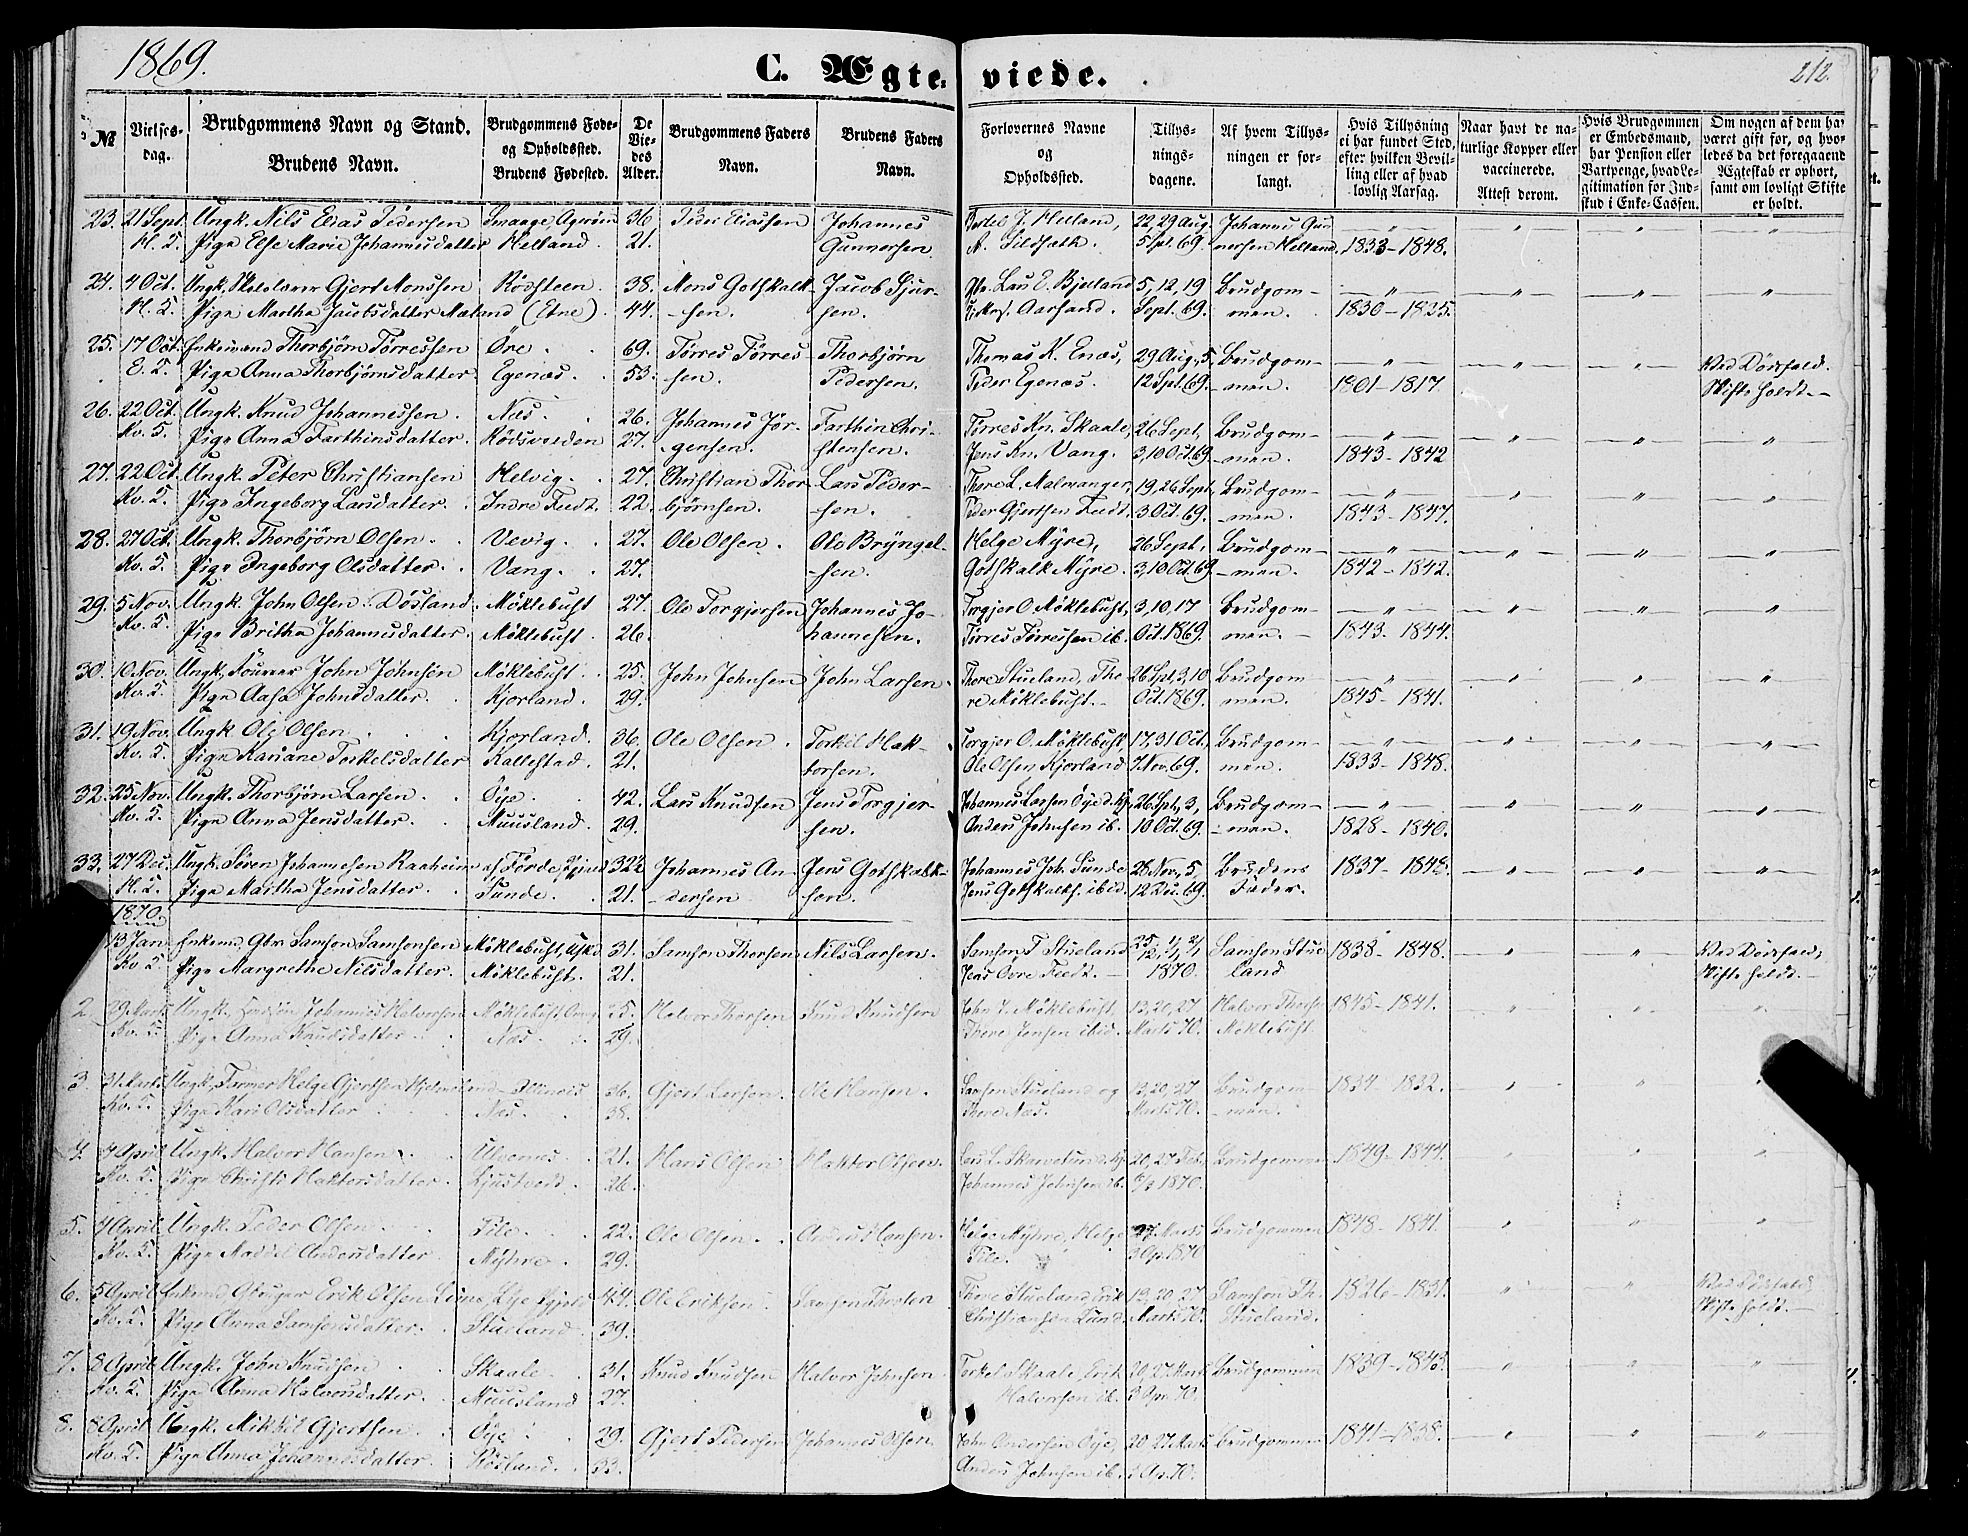 1869.
C. Ægteviede.
212.
№
Vielses-dag.
Brudgommens Navn og Stand.
Brudens Navn.
Brudgommens Føde- og Opholdssted.
Brudens Fødested.
De Viedes Alder.
Brudgommens Faders Navn.
Brudens Faders Navn.
Forlovernes Navne og Opholdssted.
Tillysningsdagene.
Af hvem Tillysningen er forlangt.
Hvis Tillysning ei har fundet Sted, efter hvilken Bevilling eller af hvad lovlig Aarsag.
Naar havt de naturlige Kopper eller vaccinerede. Attest derom.
Hvis Brudgommen er Embedsmand, har Pension eller Vartpenge, hvad Legitimation for Indskud i Enke-Cassen.
Om nogen af dem har været gift før, og hvorledes da det foregaaende Ægteskab er ophørt, samt om lovligt Skifte er holdt.
23. 21 Sept. Ungk. Nils Enas Pedersen 36 Johannes 22, 29 Aug. Johannes Gun-
H. K. Pige Else Marie Johannesdatter Helland. 21. Gunnersen. 5 Spt. 69. nersen Helland. 1833 – 1848.
24. 4 Oct. Gjert Monssen Rødsteen. 38. Mons Gothskalk- Jacob Sjur- Lars E. Bjelland 5, 12, 19 Brudgom-
Pige Martha Jacobsdatter Mæland (Etne). 44. -sen. sen. Aarsand. Sept. 69. men. 1830 – 1825.
25. 17 Oct. Enkemand Thorbjørn Tørressen Øre. 69. Tørres Tørres- Thorbjørn Thomas K. Enæs, 29 Aug., 5, Brudgom- Ved Dødsfald.
Pige Anna Thorbjørnsdatter Egenæs. 53. sen. Pedersen. Peder Egenæs. 12 Spt. 69. men. 1801 – 1817. Skifte holdt.
26. 22 Oct. Ungk. Knud Johannessen. Næs. 26. Johannes Jør- Farthin Chri- Tørres Kn. Skaale, 26 Sept., Brudgom-
Pige Anna Farthinsdatter. 27. gensen. stensen. Jens Kn. Vang. 3, 10 Oct. 69. men. 1843 – 1842
27. 22 Oct. Ungk. Peter Christiansen Helvig. 27. Christian Thor- Lars Peder- Thore L. Malmanger, 19, 26 Sept., Brudgom-
Pige Ingeborg Larsdatter. Indre Fedt. 22. bjørnsen. sen. Peder Gjertsen Fedt. 3 Oct. 69. men. 1843 – 1847.
28. 27 Oct. Ungk. Thorbjørn Olsen. Vevig. 27. Ole Olsen. Ole Bryngel- Helge Myre, 26 Sept., Brudgom-
Pige Ingeborg Olsdatter. Vang. 27. -sen. Gothskalk Myre. 3, 10 Oct. 69. men. 1842 – 1842.
29. 5 Nov. Ungk. John Olsen Døsland Møklebust 27. Ole Torgjersen Johannes Jo- Torgjer O. Møklebust, 3, 10, 17 Brudgom-
Pige Britha Johannesdatter. Møklebust. 26. hannesen. Tørres Tørressen ib. Oct. 1869. men. 1843 – 1844.
30. 10 Nov. Ungk. Farmer John Johnsen Møklebust. 25. John Johnsen John Larsen. Thore Stueland, Tho- 26 Spt., 3, 10 Brudgom-
Pige Aasa Johnsdatter. Kjorland. 29. re Møklebust. Oct. 1869. men. 1845 – 1841.
31. 19 Nov. Ungk. Ole Olsen. Kjorland. 36. Ole Olsen. Torkil Hak- Torgjer O. Møklebust, 17, 31 Oct., Brudgom-
Pige Kariane Torkelsdatter Kallestad. 21. torsen. Ole Olsen Kjorland. 7 Nov. 69. men. 1833 – 1848.
32. 25 Nov. Ungk. Thorbjørn Larsen. Øye. 42. Lars Knudsen Jens Torgjer- Johannes Larsen Øye 26 Spt., 3, Brudgom-
Pige Anna Jensdatter. Muusland. 29. sen. Anders Johnsen ib. 10 Oct. 69. men. 1828 – 1840.
33. 27 Dec. Ungk. Søren Johannesen Raaheim af Førde, 32½ Johannes An- Jens Gothskalk- Johannes Joh. Sunde 28 Nov., 5, Brudens 1837 – 1848.
Pige Martha Jensdatter. Sunde. 21. -dersen sen. Jens Gothskalks. ibid. 12 Dec. 69. Fader.
1870.
13 Jan. Samson Samsonsen Møklebust, 31. Samson Thorsen Nils Larsen. Samson T. Stueland Samson Stue- 1838 – 1848. Ved Dødsfald,
Pige Margrethe Nilsdatter. Møklebust. 21. 1870. land Skifte holdt.
2. 29 Marts Ungk. Johannes Halvorsen Møklebust 25. Halvor Thorsen Knud Knudsen John J. Møklebust, 13, 20, 27 Halvor Thorsen 1845 – 1841.
Pige Anna Knudsdatter. Næs. 29. Thore Jensen ibid. Marts 70. Møklebust.
3. 31 Marts Ungk. Farmer Helge Gjertsen Illinois 36. Gjert Larsen. Ole Hansen. Samson Stueland og 13, 20, 27 Brudgom- 1834 – 1832.
Pige Kari Olsdatter Næs. 38. Thore Næs. Marts 70. men.
4. 4 April Ungk. Halvor Hansen Ulvenes. 21. Hans Olsen Haktor Olsen. 20, 27 Feb., Brudgommen 1849 – 1844.
Pige Christi Haktorsdatter. 26. Johannes Johnsen ib. 1870.
5. 4 April Ungk. Peder Olsen. 22. Ole Olsen. Anders Hansen. Helge Myhre, Helge 27 Marts Brudgommen 1848 – 1841.
Pige Andersdatter Myhre. 29. 3 Ap. 1870
6. 5 April Erik Olsen 44. Ole Eriksen Samson Torsten Thore Stueland, Erik 13, 20, 27 Samson Th. 1826 – 1831. Ved Dødsfald,
Pige Anna Samsonsdatter. Stueland. 39. Christiansen Marts 70. Stueland. Skifte holdt.
7. 8 April Ungk. John Knudsen Skaale. 31. Knud Knudsen Halvor Johnsen Torkel Skaale, Erik 20, 27 Marts Brudgommen 1839 – 1843.
Pige Anna Halvorsdatter. Muusland 27. Halvorsen ib. 3 Apr. 70.
8. 8 April Ungk. Mikkel Gjertsen. Øye. 29. Gjert Pedersen Johannes Olsen. John Andersen Øye, 20, 27 Marts Brudgommen 1841 – 1838.
Pige Anna Johannesdatter. Røsland. 33. Anders Johnsen ib. 3 Ap. 70.